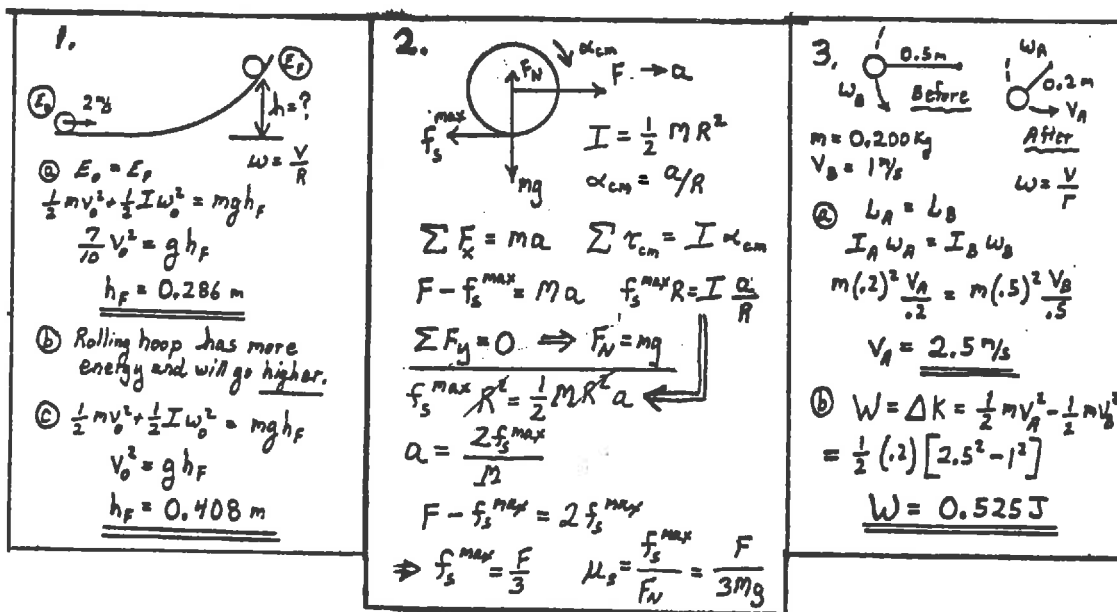 1.
E₀ 2 m/s
E_F
h=?
ω = V/R
ⓐ E₀ = E_F
½mv₀² + ½Iω₀² = mgh_F
7/10 v₀² = gh_F
h_F = 0.286 m
ⓑ Rolling hoop has more
energy and will go higher.
ⓒ ½mv₀² + ½Iω₀² = mgh_F
v₀² = gh_F
h_F = 0.408 m
2.
α_cm
F_N
F → a
f_s^max
mg
I = ½ MR²
α_cm = a/R
∑F_x = ma ∑τ_cm = I α_cm
F - f_s^max = Ma f_s^max R = I a/R
∑F_y = 0 ⟹ F_N = mg
f_s^max R² = ½ MR² a
a = 2f_s^max/M
F - f_s^max = 2f_s^max
⇒ f_s^max = F/3 μ_s = f_s^max/F_N = F/3Mg
3.
0.5m
ω_B
Before
ω_A
0.2m
V_A
After
m = 0.200 kg
V_B = 1 m/s
ω = V/r
ⓐ L_A = L_B
I_A ω_A = I_B ω_B
m(.2)² V_A/.2 = m(.5)² V_B/.5
V_A = 2.5 m/s
ⓑ W = ΔK = ½mV_A² - ½mV_B²
= ½(.2)[2.5² - 1²]
W = 0.525 J